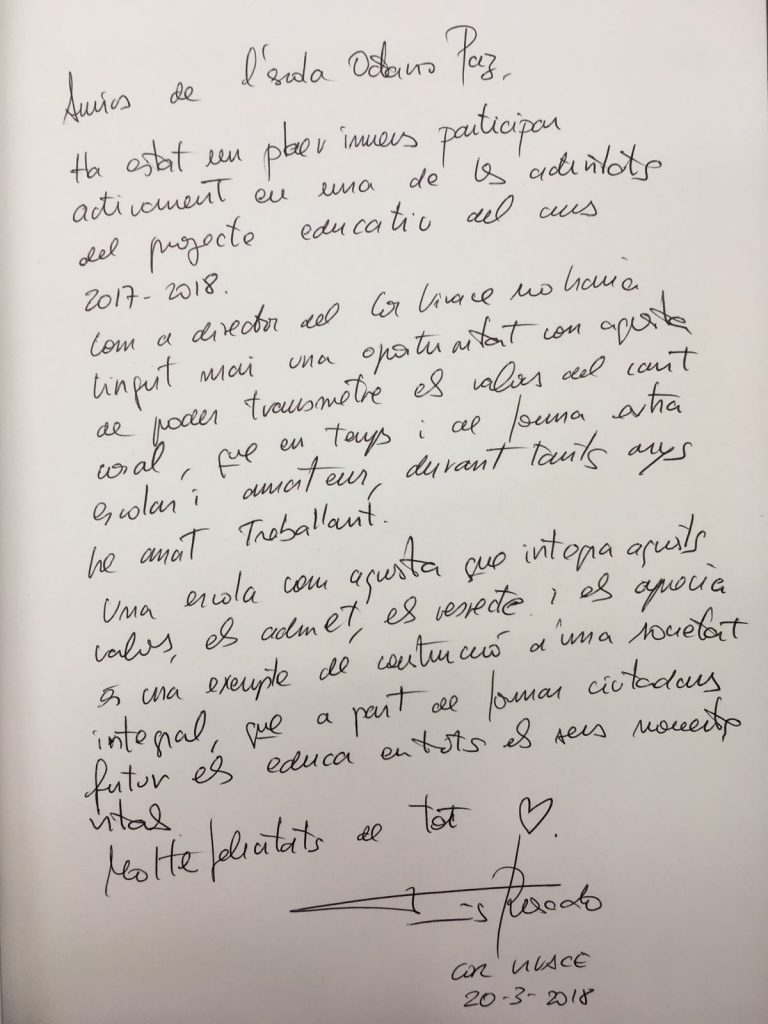 Amics de l'escola Octavio Paz,
Ha estat un plaer immens participar
activament en una de les activitats
del projecte educatiu del curs
2017-2018.
Com a director del Cor Vivace no havia
tingut mai una oportunitat com aquesta
de poder transmetre els valors del cant
coral, que en temps i de forma extra
escolar i amateur, durant tants anys
he anat treballant.
Una escola com aquesta que integra aquests
valors, els admet, els respecte i els aprecia
és una exemple de construcció d'una societat
integral, que a part de formar ciutadans
futur els educa en tots els seus moments
vitals.
Molte felicitats de tot ♡.
COR VIVACE
20-3-2018